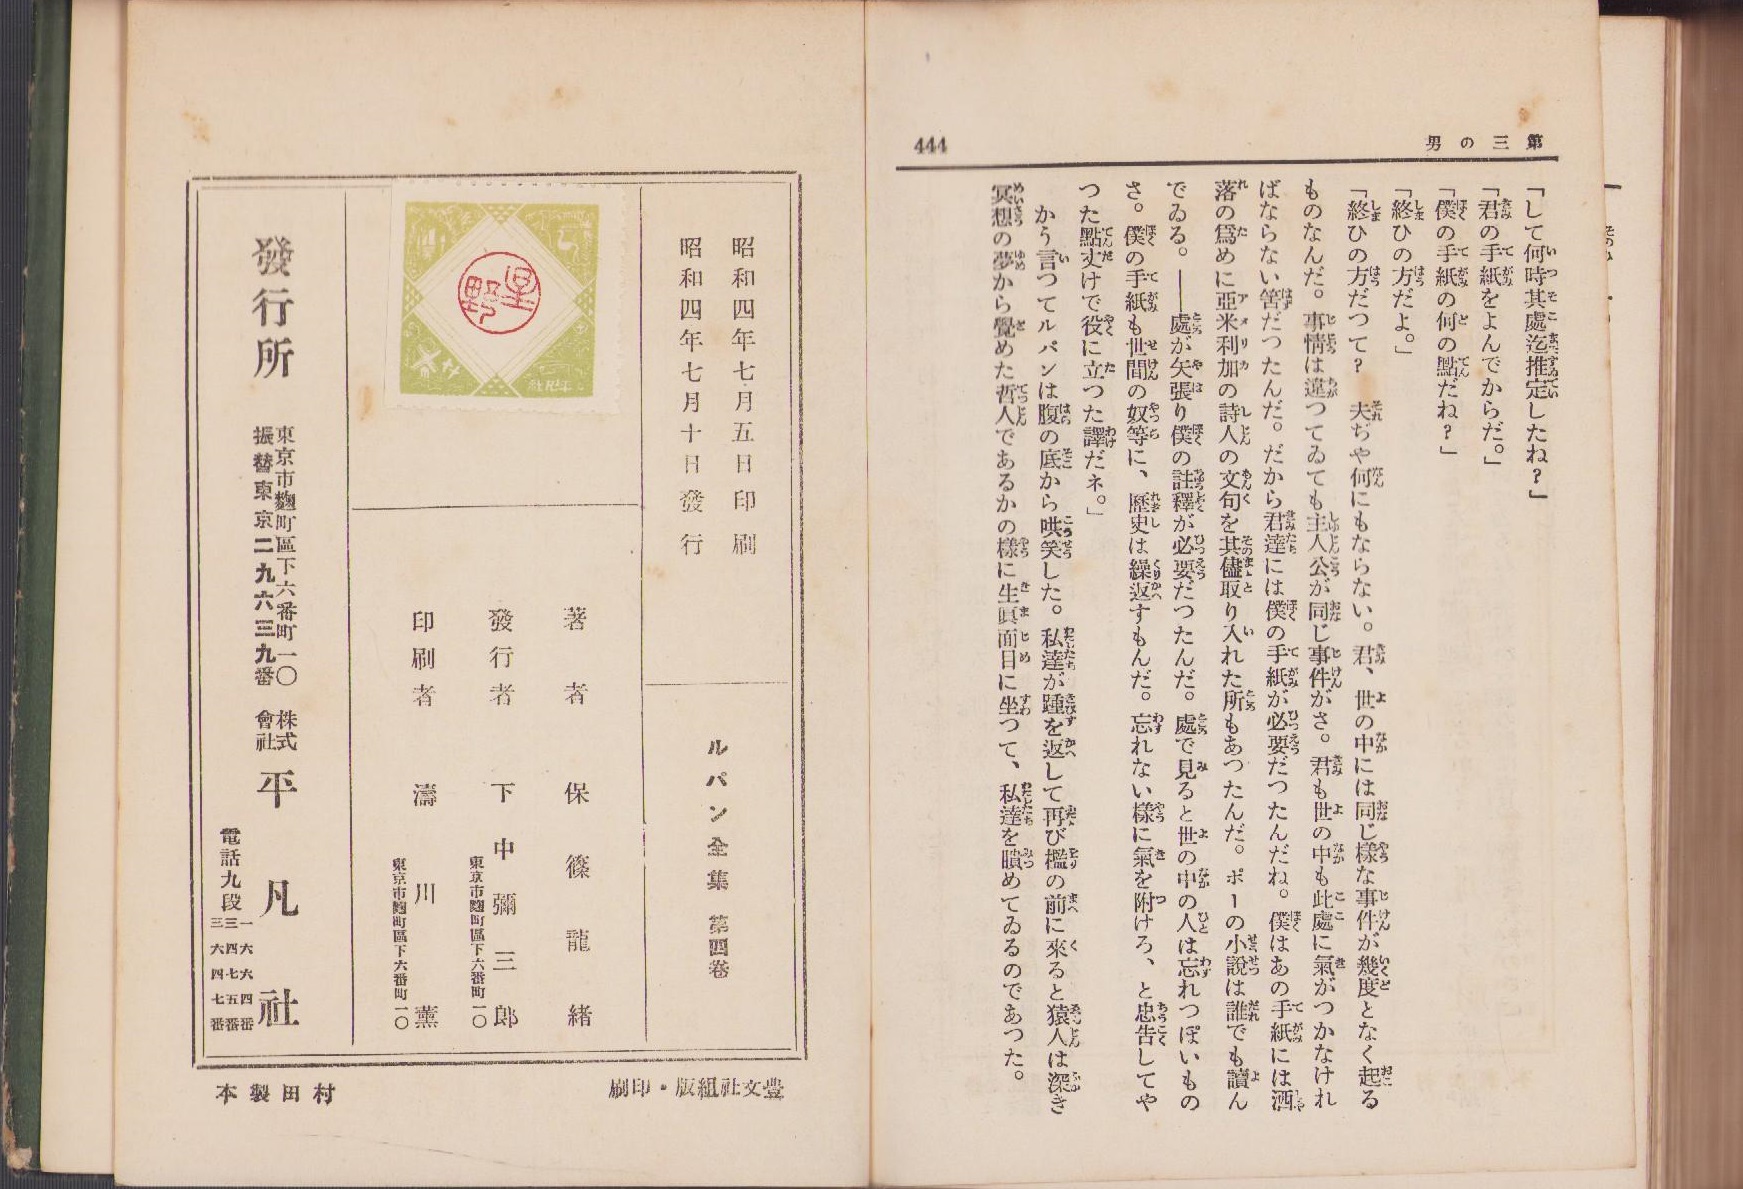 第三の男
444
「して何時其處迄推定したね？」
「君の手紙をよんでからだ。」
「僕の手紙の何の點だね？」
「終ひの方だよ。」
「終ひの方だつて？　夫ぢや何にもならない。君、世の中には同じ樣な事件が幾度となく起る
ものなんだ。事情は違つてゐても主人公が同じ事件がさ。君も世の中も此處に氣がつかなけれ
ばならない筈だつたんだ。だから君達には僕の手紙が必要だつたんだね。僕はあの手紙には洒
落の爲めに亞米利加の詩人の文句を其儘取り入れた所もあつたんだ。ポーの小說は誰でも讀ん
でゐる。――處が矢張り僕の註釋が必要だつたんだ。處で見ると世の中の人は忘れつぽいもの
さ。僕の手紙も世間の奴等に、歷史は繰返すもんだ。忘れない樣に氣を附けろ、と忠告してや
つた點丈けで役に立つた譯だネ。」
かう言つてルパンは腹の底から哄笑した。私達が踵を返して再び檻の前に來ると猿人は深き
冥想の夢から覺めた哲人であるかの樣に生眞面目に坐つて、私達を瞶めてゐるのであつた。
昭和四年七月五日印刷
昭和四年七月十日發行
ルパン全集　第四卷
星野
著者　保篠龍緖
發行者　下中彌三郎
東京市麴町區下六番町一〇
印刷者　濤川薰
東京市麴町區下六番町一〇
發行所
東京市麴町區下六番町一〇
振替東京二九六三九番
株式會社　平凡社
電話九段
一六六四番
三四七五番
三六四七番
豐文社組版・印刷
村田製本